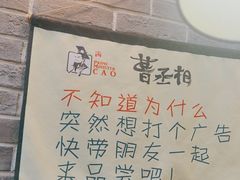 PRIME
MINISTER
CAO
曹丞相
不知道为什么
突然想打个广告
快带朋友一起
来品尝吧！